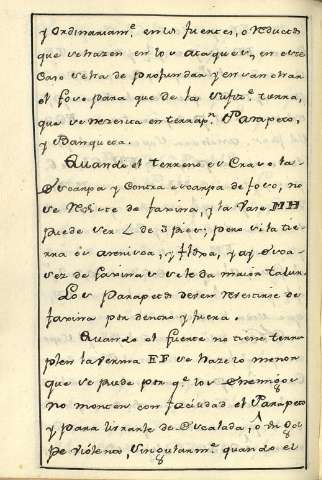 y Ordinariam.e en los fuertes, o Reductos
que se hazen en los ataques, en este
caso se ha de profundar y ensanchar
el foso para que de la sufiz.te tierra,
que se nezesita en terrapn. Parapeto,
y Banqueta.
Quando el terreno es Crave la
Escarpa y Contra escarpa de foso, no
se Reviste de faxina, y la Vase MH
puede ser L de 3 pies; pero si la tie-
rra es arenisca, y floxa, y ay Esca-
sez de faxina se le da maior talux.
Los Parapetos deven revestirse de
faxina por dentro y fuera.
Quando el fuerte no tiene terra-
plen la Verma EF se haze lo menor
que se pude por q.e los Enemigos
no monten con facilidad el Parapeto
y para librarte de Escalada, ô de gol-
pe violento, singularm.e quando el